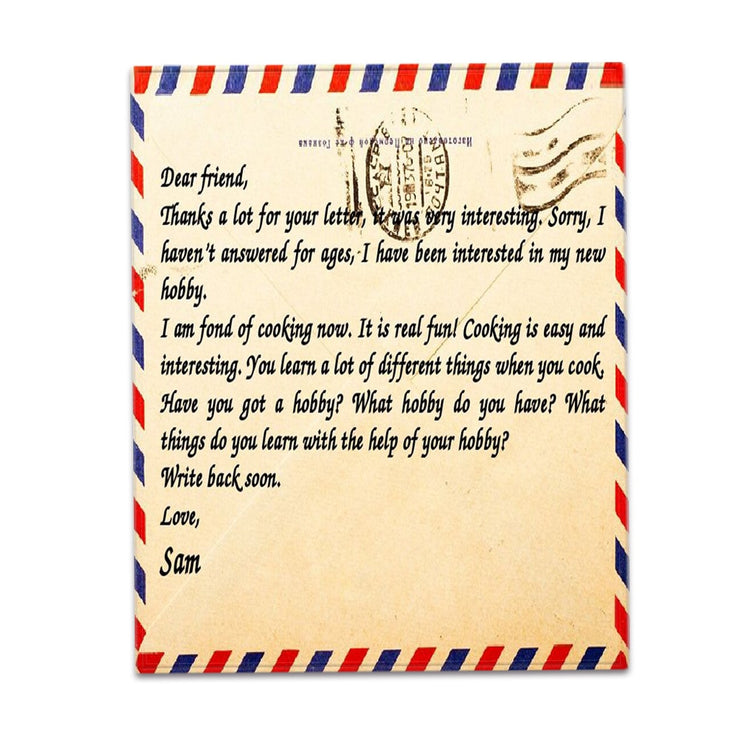 Изготовлено на Пермской ф-ке Гознака
Dear friend,
Thanks a lot for your letter, it was very interesting. Sorry, I
haven't answered for ages, I have been interested in my new
hobby.
I am fond of cooking now. It is real fun! Cooking is easy and
interesting. You learn a lot of different things when you cook.
Have you got a hobby? What hobby do you have? What
things do you learn with the help of your hobby?
Write back soon.
Love,
Sam